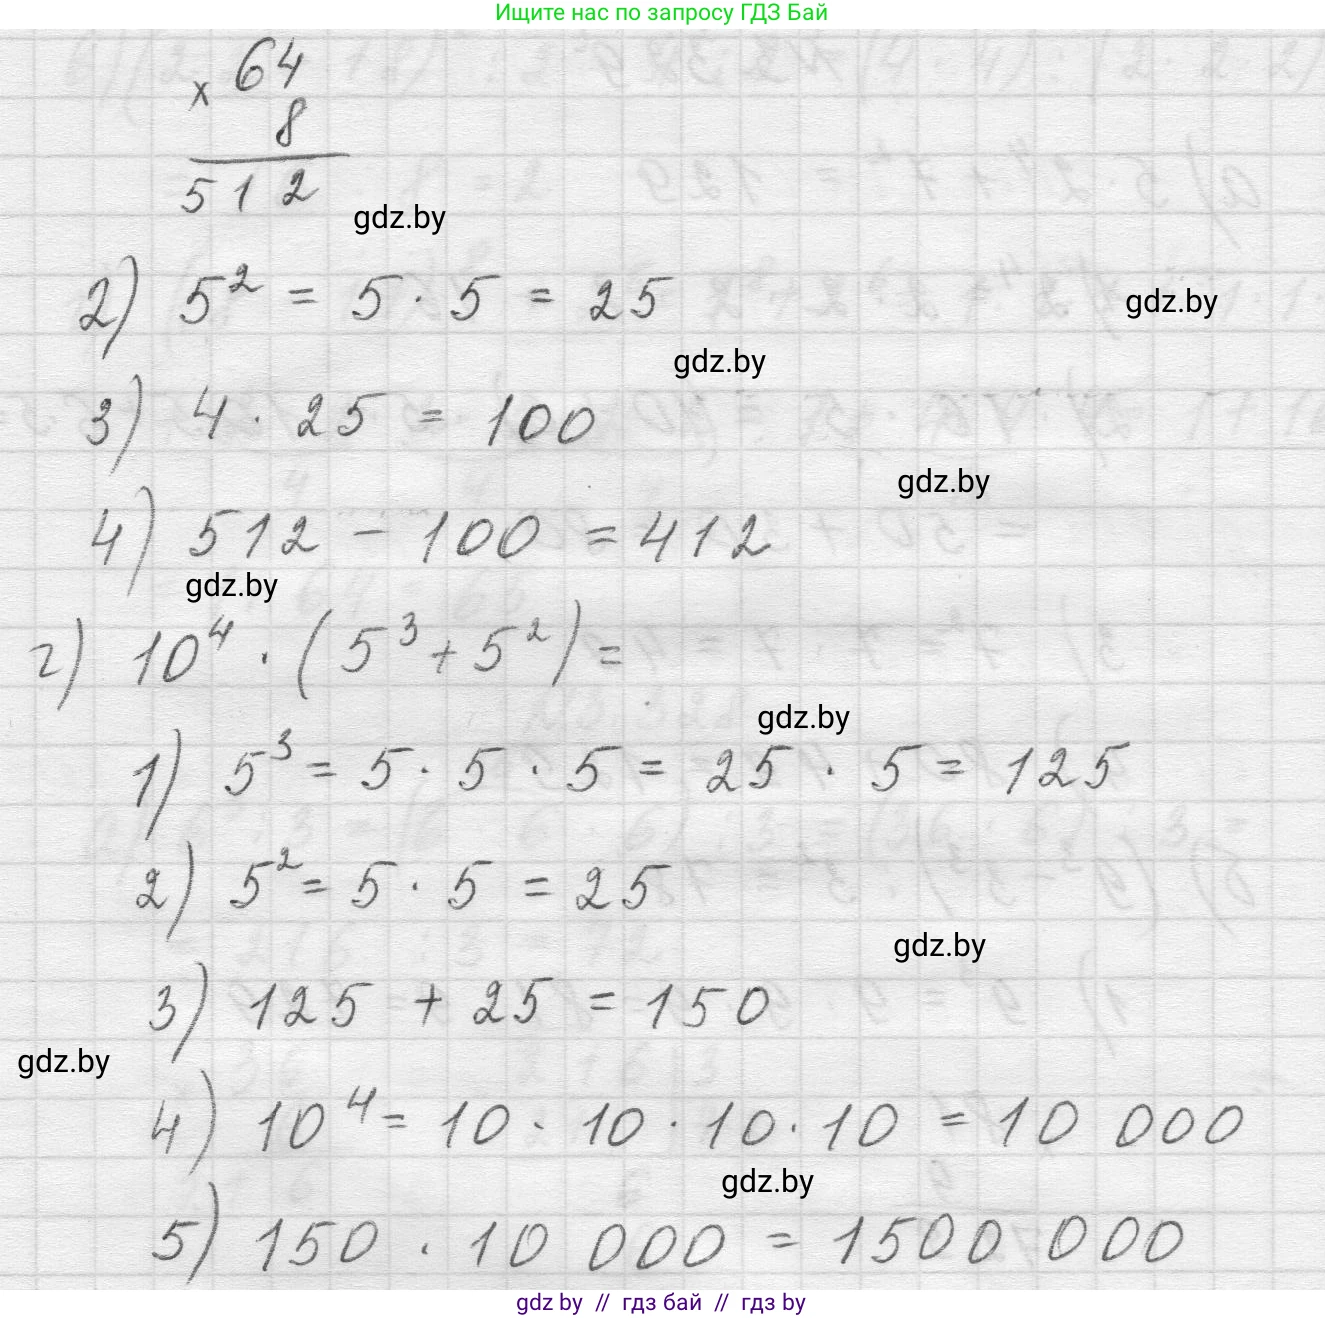 Ищите нас по запросу ГДЗ Бай
× 64
8
512
gdz.by
2) 5² = 5 · 5 = 25
gdz.by
gdz.by
3) 4 · 25 = 100
gdz.by
4) 512 - 100 = 412
gdz.by
г) 10⁴ · (5³ + 5²) =
gdz.by
1) 5³ = 5 · 5 · 5 = 25 · 5 = 125
2) 5² = 5 · 5 = 25
gdz.by
3) 125 + 25 = 150
gdz.by
4) 10⁴ = 10 · 10 · 10 · 10 = 10 000
gdz.by
5) 150 · 10 000 = 1500 000
gdz by // гдз бай // gdz by